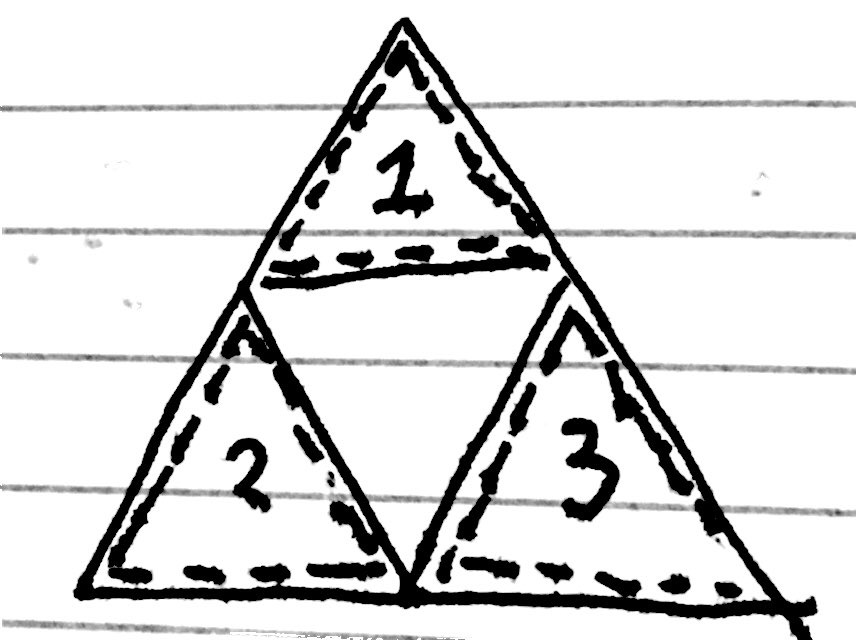 1
2 3